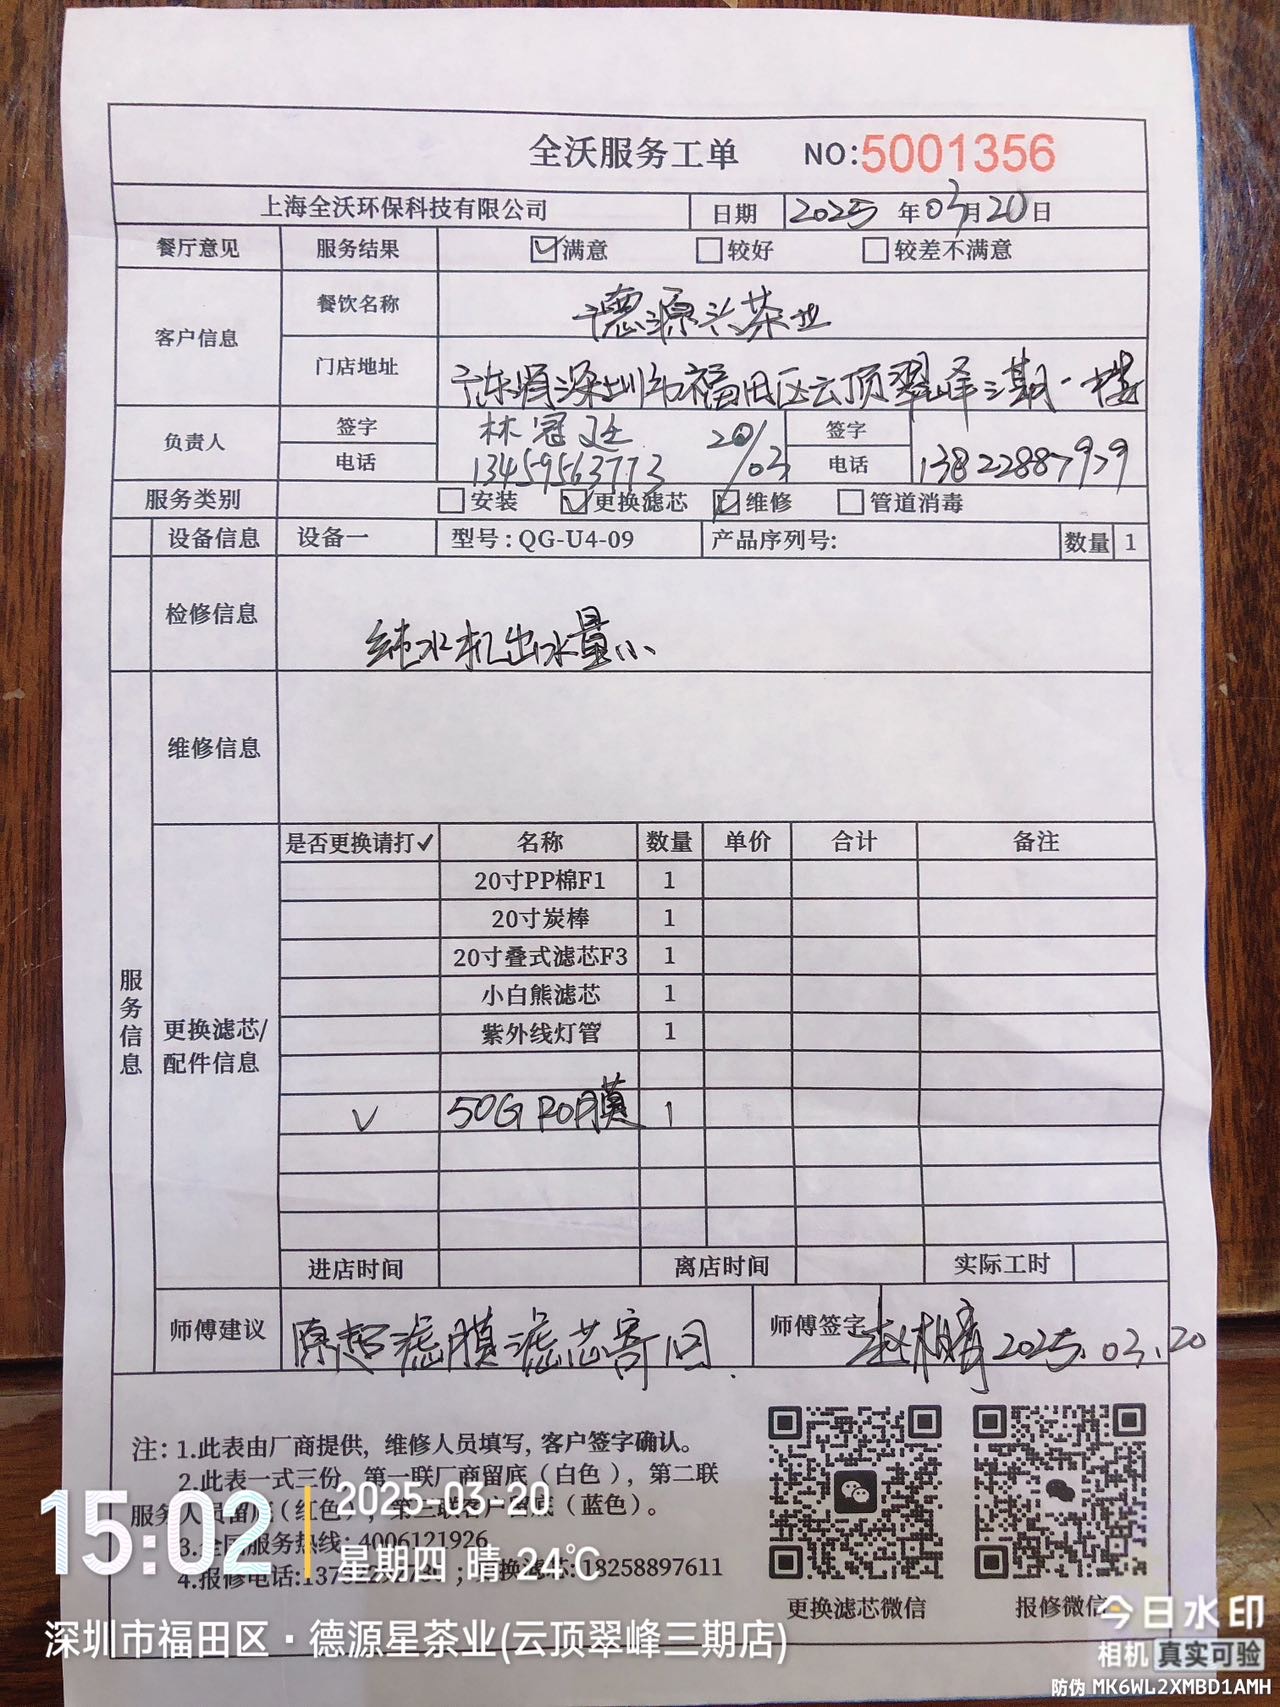 全沃服务工单 NO:5001356
上海全沃环保科技有限公司 日期 2025 年 03 月 20 日
餐厅意见 服务结果 ☑满意 □较好 □较差不满意
客户信息 餐饮名称 德源兴茶业
门店地址 广东省深圳市福田区云顶翠峰三期一楼
负责人 签字 林冠廷 20/03 签字
电话 13459563773 电话 13822887929
服务类别 □安装 ☑更换滤芯 ☑维修 □管道消毒
设备信息 设备一 型号:QG-U4-09 产品序列号: 数量 1
检修信息 纯水机出水量小
维修信息
服务信息
更换滤芯/
配件信息
是否更换请打✓ 名称 数量 单价 合计 备注
20寸PP棉F1 1
20寸炭棒 1
20寸叠式滤芯F3 1
小白熊滤芯 1
紫外线灯管 1
✓ 50G RO膜 1
进店时间 离店时间 实际工时
师傅建议 滤膜滤芯寄回 师傅签字 赵 2025.03.20
注: 1.此表由厂商提供, 维修人员填写, 客户签字确认。
2.此表一式三份, 第一联厂商留底(白色), 第二联
服务人员留底(红色), 第三联客户留底(蓝色)。
3.全国服务热线: 4006121926
4.报修电话:137 ; 更换滤芯:18258897611
更换滤芯微信 报修微信
15:02 2025-03-20
星期四 晴 24℃
深圳市福田区·德源星茶业(云顶翠峰三期店)
今日水印
相机 真实可验
防伪 MK6WL2XMBD1AMH